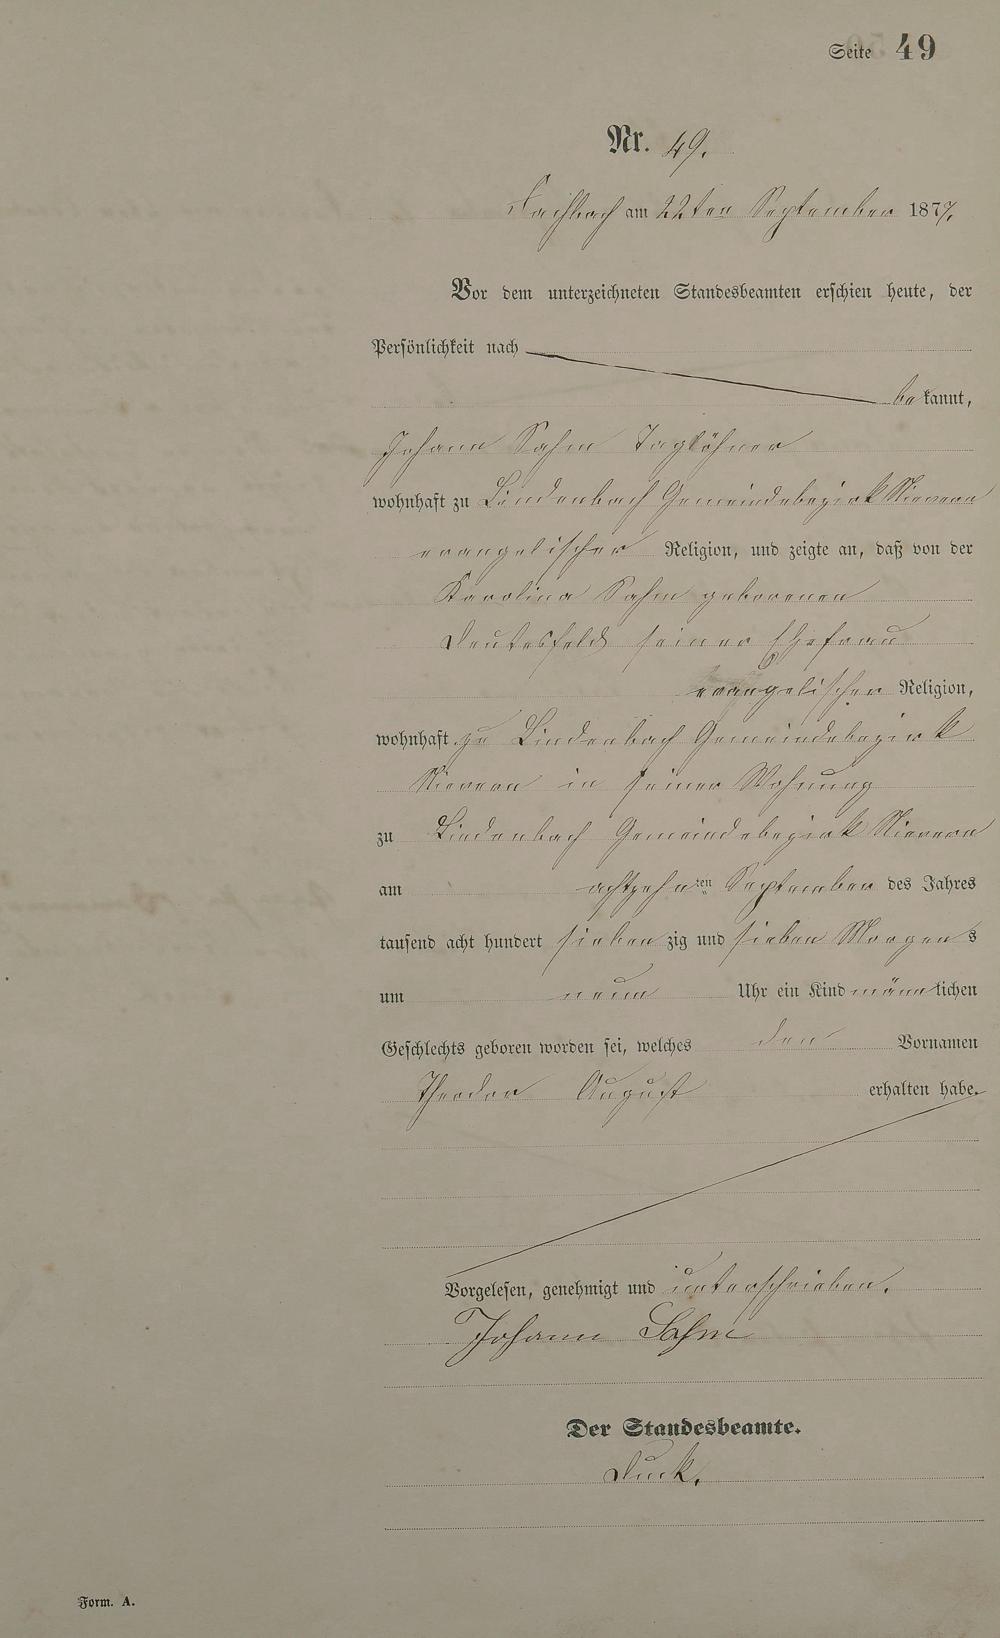 Seite 49
Nr. 49.
Fachbach am 22ten September 1877.
Vor dem unterzeichneten Standesbeamten erschien heute, der
Persönlichkeit nach
bekannt,
Johann Sahm Taglöhner
wohnhaft zu Lindenbach Gemeindebezirk Nievern
evangelischer Religion, und zeigte an, daß von der
Karolina Sahm geborenen
Deutesfeld seiner Ehefrau
evangelischer Religion,
wohnhaft zu Lindenbach Gemeindebezirk
Nievern in seiner Wohnung
zu Lindenbach Gemeindebezirk Nievern
am achtzehnten September des Jahres
tausend acht hundert siebenzig und sieben Morgens
um neun Uhr ein Kind männlichen
Geschlechts geboren worden sei, welches den Vornamen
Theodor August erhalten habe.
Vorgelesen, genehmigt und unterschrieben.
Johann Sahm
Der Standesbeamte.
Form. A.